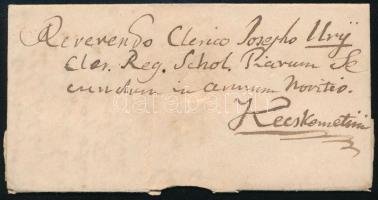 Reverendo Clerico Josepho Urÿ
Cler. Reg. Schol. Piarum Se
cundum in annum Novitio.
Kecskemetini